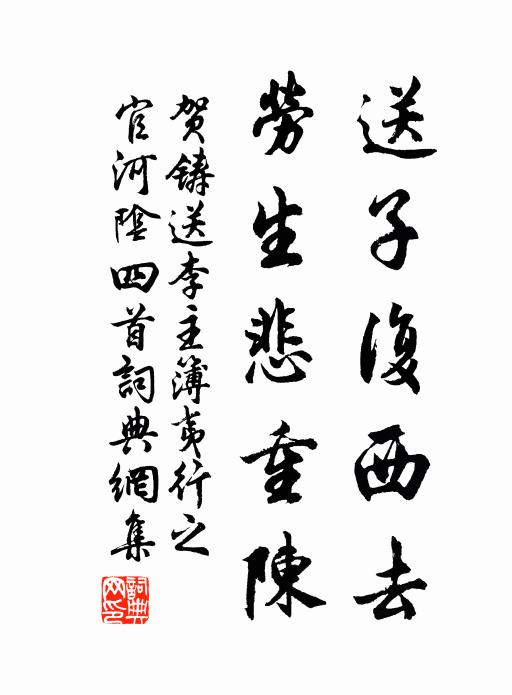 送子復西去
勞生悲重陳
贺鑄送李主簿夷行之
官河陰四首詞典網集
詞典
网印